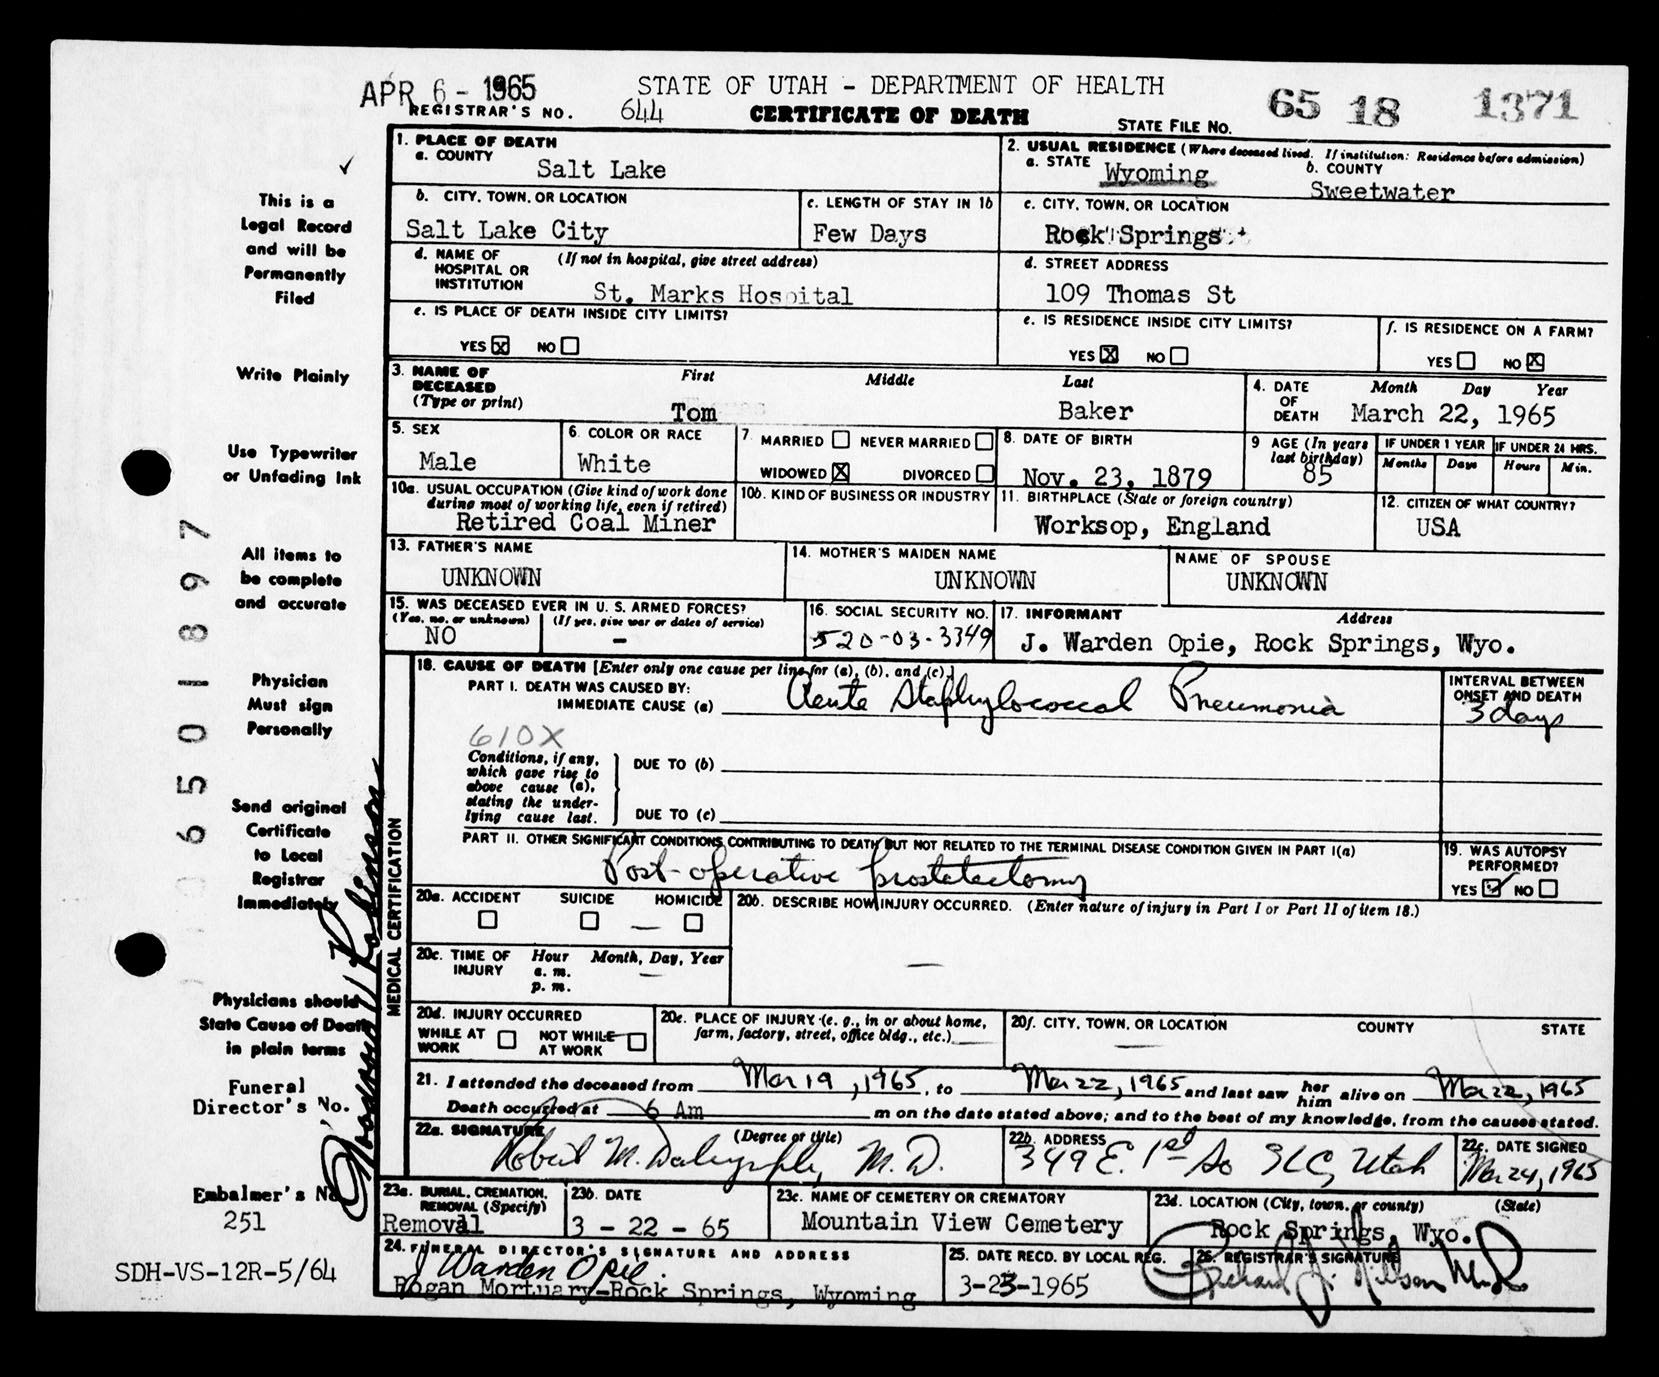 APR 6 - 1965
STATE OF UTAH - DEPARTMENT OF HEALTH
65 18 1371
REGISTRAR'S NO. 644
CERTIFICATE OF DEATH
STATE FILE NO.
1. PLACE OF DEATH
a. COUNTY
Salt Lake
2. USUAL RESIDENCE (Where deceased lived. If institution: Residence before admission)
a. STATE Wyoming
b. COUNTY
Sweetwater
b. CITY, TOWN, OR LOCATION
Salt Lake City
c. LENGTH OF STAY IN 1b
Few Days
c. CITY, TOWN, OR LOCATION
Rock Springs
d. NAME OF HOSPITAL OR INSTITUTION (If not in hospital, give street address)
St. Marks Hospital
d. STREET ADDRESS
109 Thomas St
e. IS PLACE OF DEATH INSIDE CITY LIMITS?
YES X NO
e. IS RESIDENCE INSIDE CITY LIMITS?
YES X NO
f. IS RESIDENCE ON A FARM?
YES NO X
3. NAME OF DECEASED (Type or print)
First Middle Last
Tom Baker
4. DATE OF DEATH
Month Day Year
March 22, 1965
5. SEX
Male
6. COLOR OR RACE
White
7. MARRIED NEVER MARRIED
WIDOWED X DIVORCED
8. DATE OF BIRTH
Nov. 23, 1879
9 AGE (In years last birthday)
85
IF UNDER 1 YEAR
Months Days
IF UNDER 24 HRS.
Hours Min.
10a. USUAL OCCUPATION (Give kind of work done during most of working life, even if retired)
Retired Coal Miner
10b. KIND OF BUSINESS OR INDUSTRY
11. BIRTHPLACE (State or foreign country)
Worksop, England
12. CITIZEN OF WHAT COUNTRY?
USA
13. FATHER'S NAME
UNKNOWN
14. MOTHER'S MAIDEN NAME
UNKNOWN
NAME OF SPOUSE
UNKNOWN
15. WAS DECEASED EVER IN U. S. ARMED FORCES?
(Yes, no, or unknown) (If yes, give war or dates of service)
NO -
16. SOCIAL SECURITY NO.
520-03-3349
17. INFORMANT Address
J. Warden Opie, Rock Springs, Wyo.
MEDICAL CERTIFICATION
18. CAUSE OF DEATH [Enter only one cause per line for (a), (b), and (c).]
PART I. DEATH WAS CAUSED BY:
IMMEDIATE CAUSE (a) Acute Staphylococcal Pneumonia
INTERVAL BETWEEN ONSET AND DEATH
3 days
610X
Conditions, if any, which gave rise to above cause (a), stating the underlying cause last.
DUE TO (b)
DUE TO (c)
PART II. OTHER SIGNIFICANT CONDITIONS CONTRIBUTING TO DEATH BUT NOT RELATED TO THE TERMINAL DISEASE CONDITION GIVEN IN PART I(a)
Post-operative prostatectomy
19. WAS AUTOPSY PERFORMED?
YES NO
20a. ACCIDENT SUICIDE HOMICIDE
20b. DESCRIBE HOW INJURY OCCURRED. (Enter nature of injury in Part I or Part II of item 18.)
20c. TIME OF INJURY
Hour Month, Day, Year
a. m.
p. m.
20d. INJURY OCCURRED
WHILE AT WORK NOT WHILE AT WORK
20e. PLACE OF INJURY (e. g., in or about home, farm, factory, street, office bldg., etc.)
20f. CITY, TOWN, OR LOCATION COUNTY STATE
21. I attended the deceased from Mar 19, 1965, to Mar 22, 1965 and last saw her him alive on Mar 22, 1965
Death occurred at 6 Am m on the date stated above; and to the best of my knowledge, from the causes stated.
22a. SIGNATURE (Degree or title)
Robert M. Dalrymple, M.D.
22b. ADDRESS
349 E. 1st So SLC, Utah
22c. DATE SIGNED
Mar 24, 1965
23a. BURIAL, CREMATION, REMOVAL (Specify)
Removal
23b. DATE
3 - 22 - 65
23c. NAME OF CEMETERY OR CREMATORY
Mountain View Cemetery
23d. LOCATION (City, town, or county) (State)
Rock Springs, Wyo.
24. FUNERAL DIRECTOR'S SIGNATURE AND ADDRESS
J Warden Opie.
Rogan Mortuary-Rock Springs, Wyoming
25. DATE RECD. BY LOCAL REG.
3-23-1965
26. REGISTRAR'S SIGNATURE
This is a
Legal Record
and will be
Permanently
Filed
Write Plainly
Use Typewriter
or Unfading Ink
All items to
be complete
and accurate
Physician
Must sign
Personally
Send original
Certificate
to Local
Registrar
Immediately
Physicians should
State Cause of Death
in plain terms
Funeral
Director's No.
Embalmer's No
251
SDH-VS-12R-5/64
6501897
Robinson